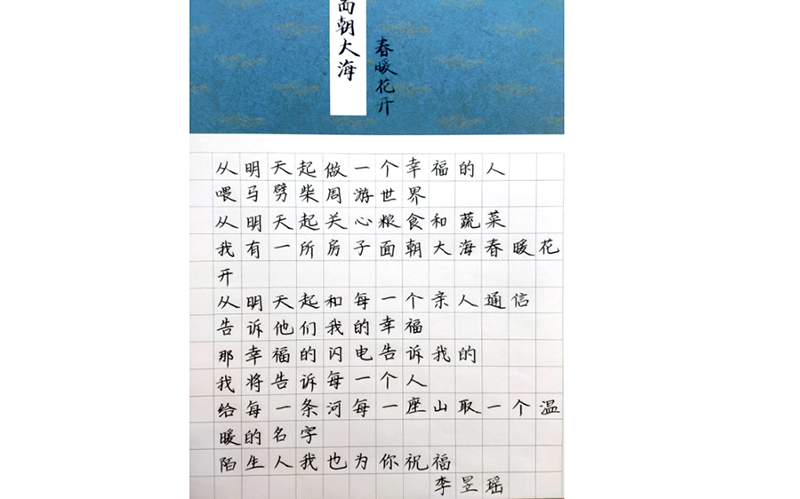 面朝大海
春暖花开
从明天起做一个幸福的人
喂马劈柴周游世界
从明天起关心粮食和蔬菜
我有一所房子面朝大海春暖花
开
从明天起和每一个亲人通信
告诉他们我的幸福
那幸福的闪电告诉我的
我将告诉每一个人
给每一条河每一座山取一个温
暖的名字
陌生人我也为你祝福
李昱瑶